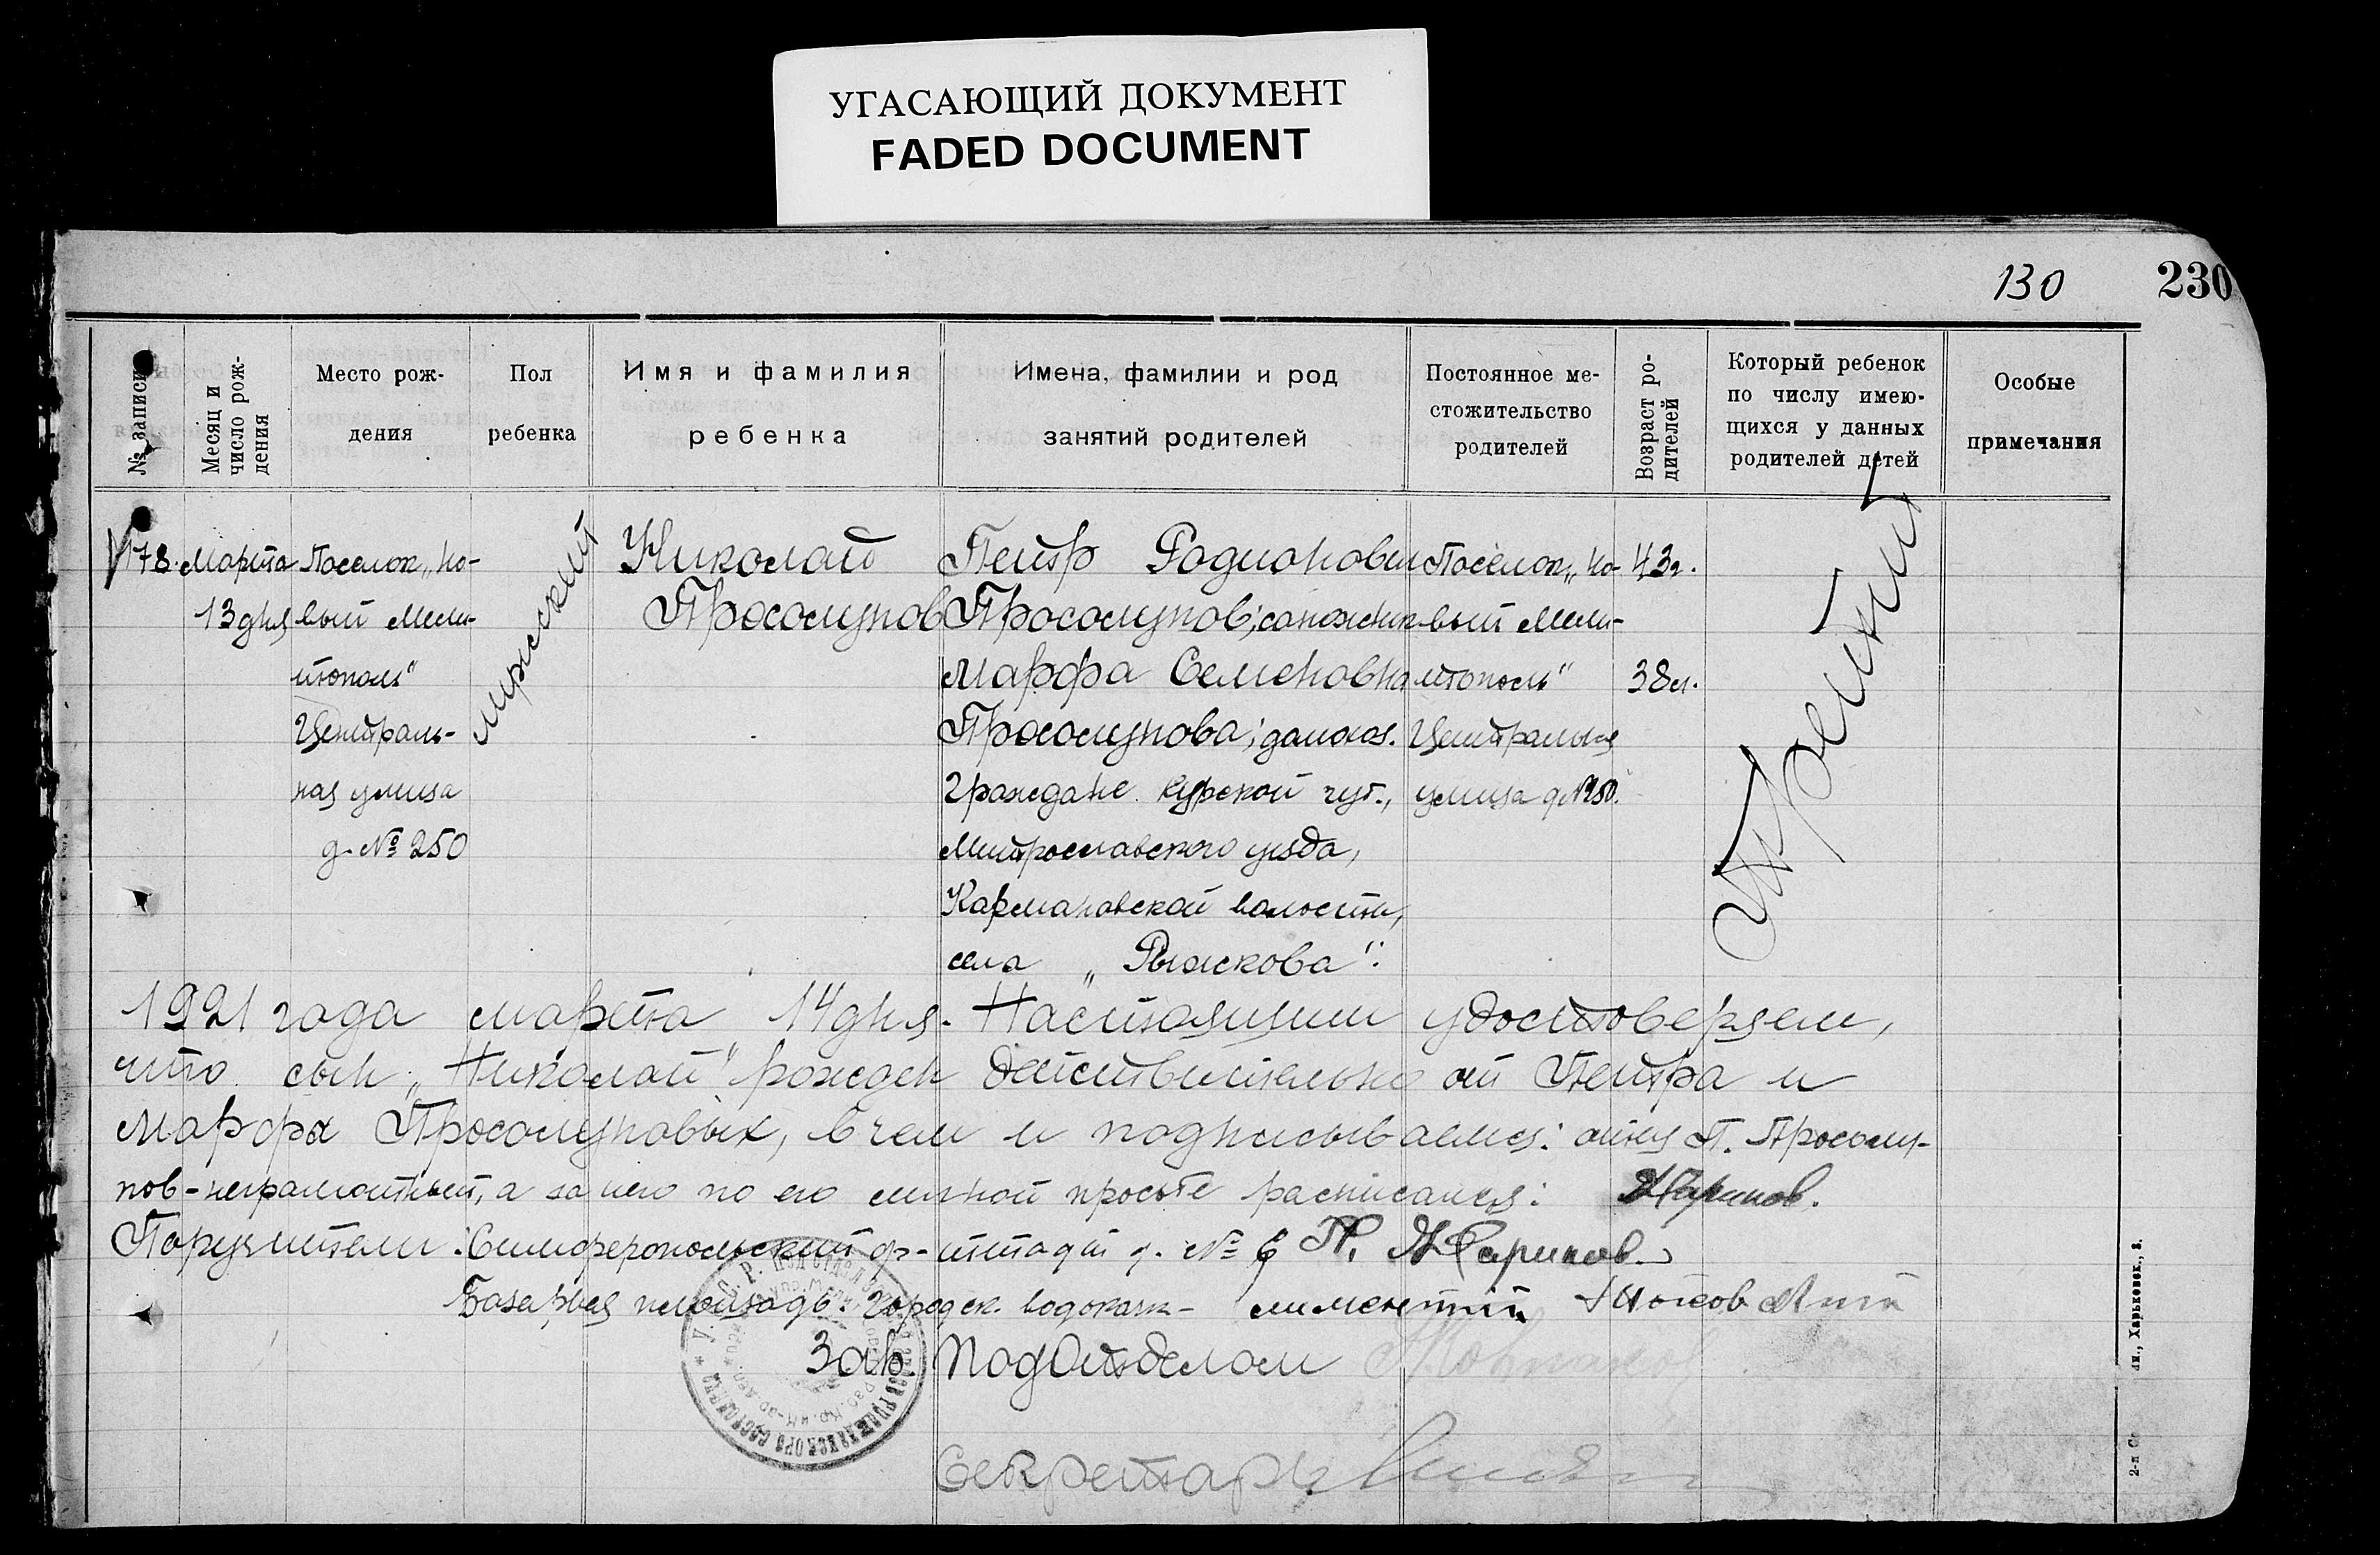 УГАСАЮЩИЙ ДОКУМЕНТ
FADED DOCUMENT
130
230
№ записи
Месяц и
число рож-
дения
Место рож-
дения
Пол
ребенка
Имя и фамилия
ребенка
Имена, фамилии и род
занятий родителей
Постоянное ме-
стожительство
родителей
Возраст ро-
дителей
Который ребенок
по числу имею-
щихся у данных
родителей детей
Особые
примечания
178.
Марта
13 дня
Поселок „Но-
вый Мели-
тополь"
Централь-
ная улица
д. № 250
мужской
Николай
Просолупов
Петр Родионович
Просолупов; сапожник
Марфа Семеновна
Просолупова; домохоз.
Граждане Курской губ.,
Митрославского уезда,
Кармановской волости,
села „Рыжкова".
Поселок „Но-
вый Мели-
тополь"
Центральная
улица д. № 250.
43 г.
38 л.
третий
1921 года марта 14 дня. Настоящим удостоверяем,
что сын „Николай" рожден действительно от Петра и
Марфы Просолуповых, в чем и подписываемся: отец П. Просолу-
пов - неграмотный, а за него по его личной просьбе расписался:
Поручители: Симферопольский ф-штадт д. № 6
Базарная площадь. Городск. водокачк-
Зав. Подотделом
Секретарь